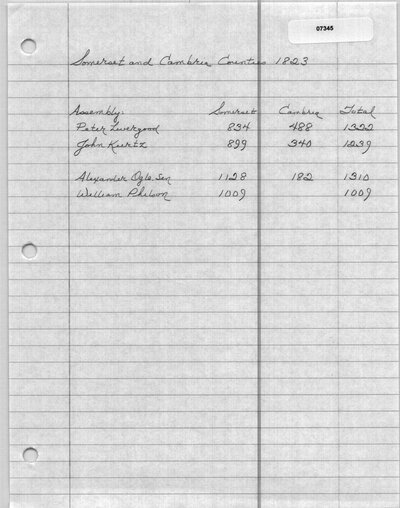 07345
Somerset and Cambria Counties 1823
Assembly: Somerset Cambria Total
Peter Livergood 834 488 1322
John Kurtz 899 340 1239
Alexander Ogle Sen 1128 182 1310
William Philson 1009 1009